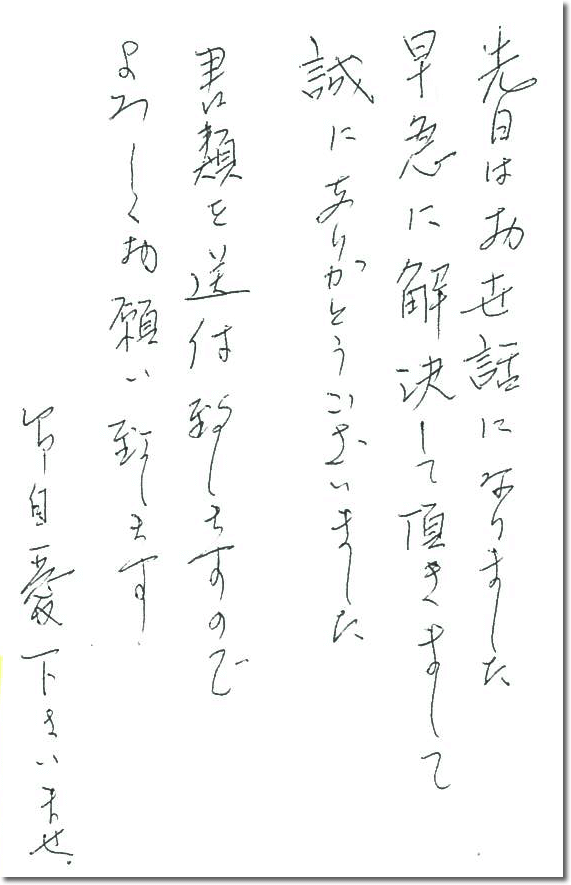 先日はお世話になりました
早急に解決して頂きまして
誠にありがとうございました
書類を送付致しますので
よろしくお願い致します
ご自愛下さいませ